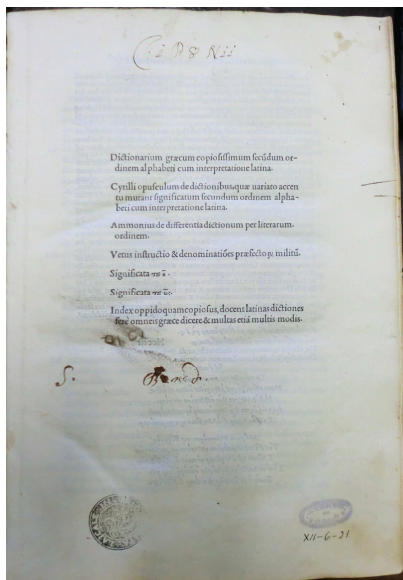 Dictionarium græcum copiosissimum secūdum or-
dinem alphabeti cum interpretatione latina.
Cyrilli opusculum de dictionibus, quæ uariato accen
tu mutant significatum secundum ordinem alpha-
beti cum interpretatione latina.
Ammonius de differentia dictionum per literarum
ordinem.
Vetus instructio & denominatiões præfectorꝫ militū.
Significata
Significata
Index oppido quam copiosus, docens latinas dictiones
fere omneis græce dicere & multas etiā multis modis.
S. Bened.
XII-6-21